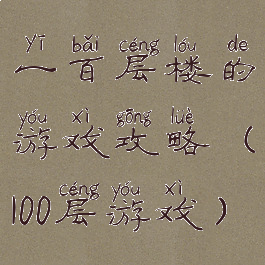 yī bǎi céng lóu de
一百层楼的
yóu xì gōng lüè
游戏攻略（
céng yóu xì
100层游戏）